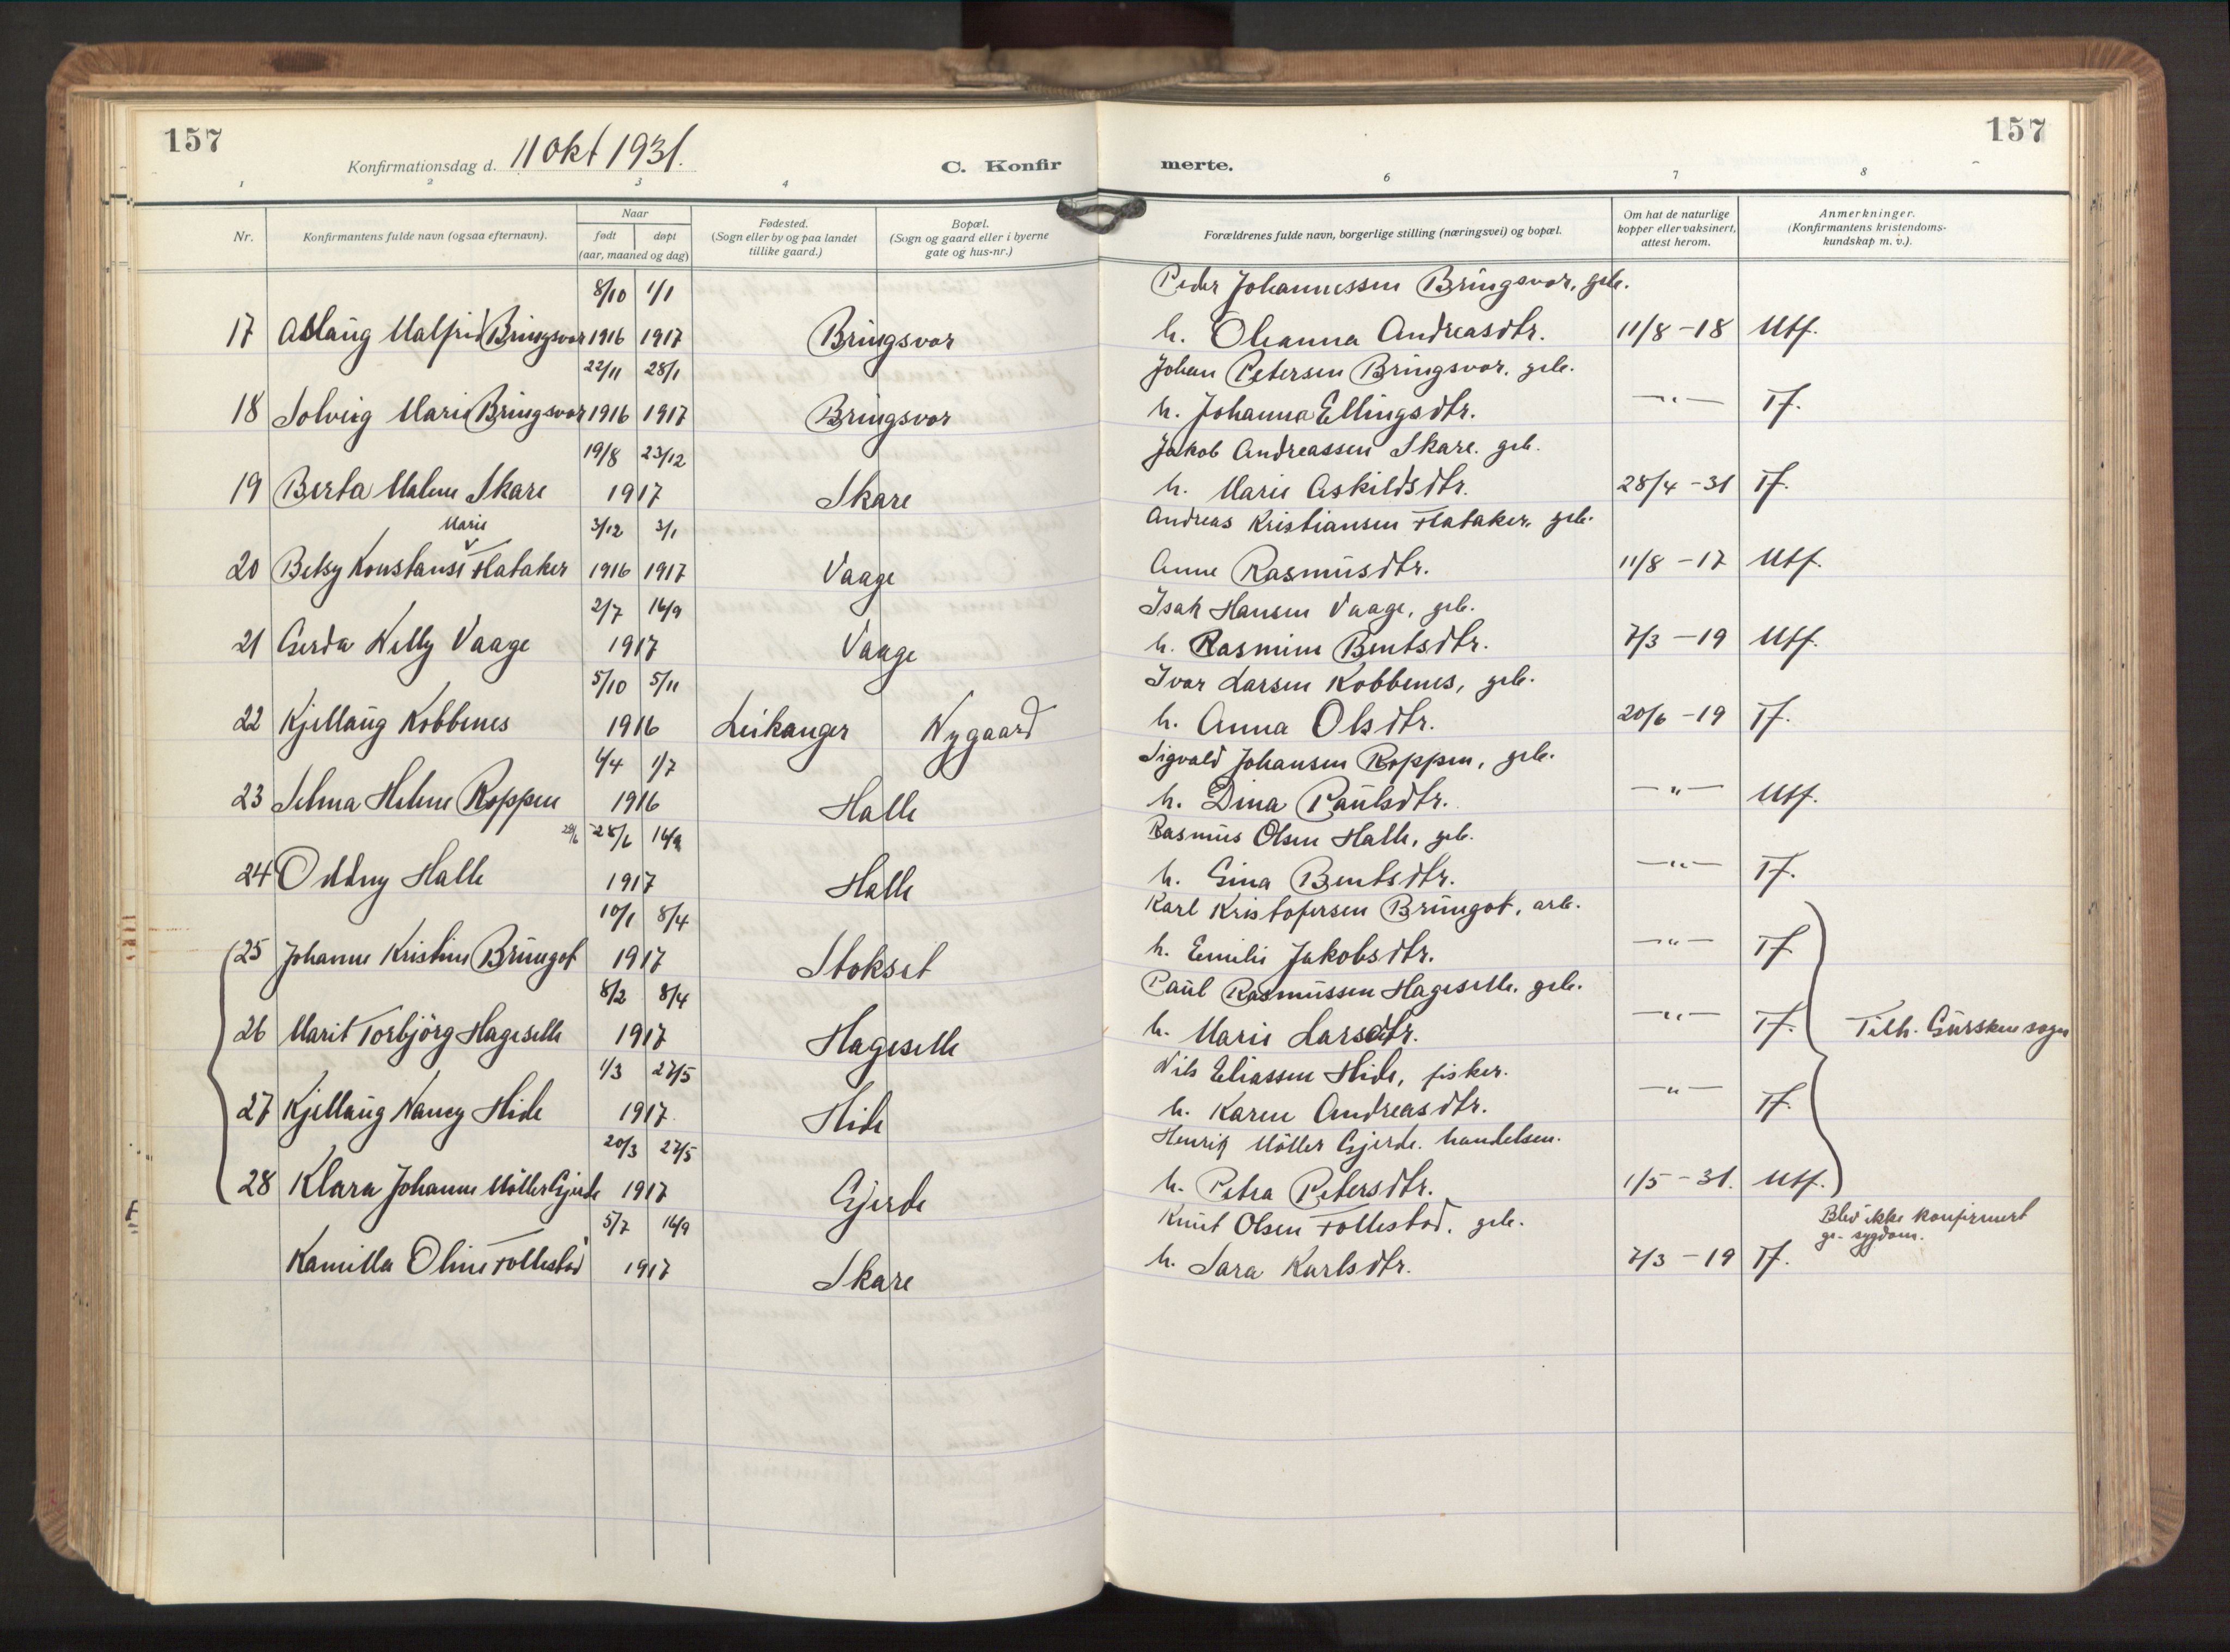 157
157
Konfirmationsdag d. 11 Okt 1931.
C. Konfir
merte.
1 2 3 4 6 7 8
Nr.
Konfirmantens fulde navn (ogsaa efternavn).
Naar
født døpt
(aar, maaned og dag)
Fødested.
(Sogn eller by og paa landet
tillike gaard.)
Bopæl.
(Sogn og gaard eller i byerne
gate og hus-nr.)
Forældrenes fulde navn, borgerlige stilling (næringsvei) og bopæl.
Om hat de naturlige
kopper eller vaksinert,
attest herom.
Anmerkninger.
(Konfirmantens kristendoms-
kundskap m. v.).
8/10 1/1 Peder Johannessen Bringsvor, gbr.
17 Aslaug Malfrid Bringsvor 1916 1917 Bringsvor h. Oleanna Andreasdtr. 11/8 -18 Utf.
22/11 28/1 Johan Petersen Bringsvor, gbr.
18 Solveig Marie Bringsvor 1916 1917 Bringsvor h. Johanna Ellingsdtr. —"— Tf.
19/8 23/12 Jakob Andreassen Skare. gbr.
19 Berta Malene Skare 1917 Skare h. Marie Askildsdtr. 28/4 -31 Tf.
Marie 3/12 3/1 Andreas Kristiansen Flataker, gbr.
20 Betsy Konstanse Flataker 1916 1917 Vaage Anne Rasmusdtr. 11/8 -17 Utf.
2/7 16/9 Isak Hansen Vaage, gbr.
21 Gerda Nelly Vaage 1917 Vaage h. Rasmine Bentsdtr. 7/3 -19 Utf.
5/10 5/11 Ivar Larsen Kobbenes, gbr.
22 Kjellaug Kobbenes 1916 Leikanger Nygaard h. Anna Olsdtr. 20/6 -19 Tf.
6/4 1/7 Sigvald Johansen Roppen, gbr.
23 Selma Helene Roppen 1916 Halle h. Dina Paulsdtr. —"— Utf.
28/6 28/6 16/9 Rasmus Olsen Halle, gbr.
24 Oddny Halle 1917 Halle h. Gina Bentsdtr. —"— Tf.
10/1 8/4 Karl Kristofersen Brungot, arb.
25 Johanne Kristine Brungot 1917 Stokset h. Emilie Jakobsdtr. —"— Tf.
8/2 8/4 Paul Rasmussen Hageselle, gbr.
26 Marit Torbjörg Hageselle 1917 Hageselle h. Marie Larsdtr. —"— Tf. Tilh. Gursken sogn
1/3 27/5 Nils Eliassen Hide, fisker.
27 Kjellaug Nancy Hide 1917. Hide h. Karen Andreasdtr. —"— Tf.
20/3 27/5 Henrik Möller Gjerde. handelsm.
28 Klara Johanne Möller Gjerde 1917 Gjerde h. Petra Petersdtr. 1/5 -31. Utf.
5/7 16/9 Knut Olsen Follestad, gbr. Blev ikke konfirmert
gr. sygdom.
Kamilla Oline Follestad 1917 Skare h. Sara Karlsdtr. 7/3 -19 Tf.